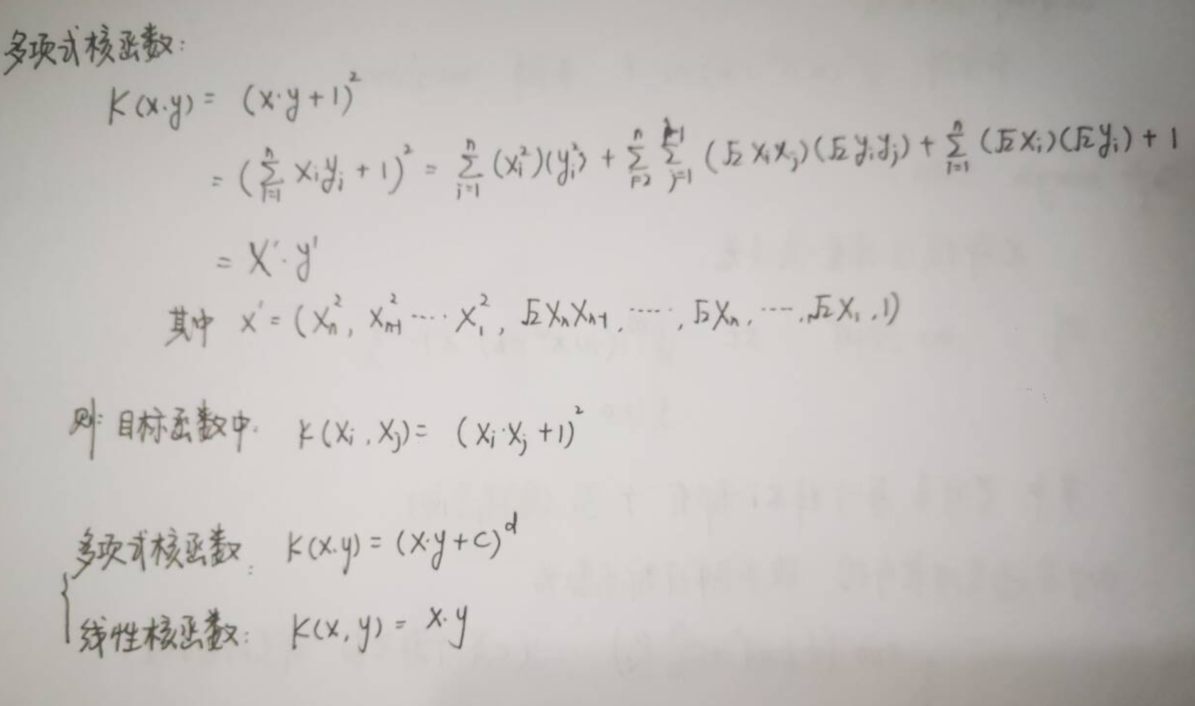 多项式核函数:
K(x·y) = (x·y+1)²
= (∑ᵢ₌₁ⁿ xᵢyᵢ + 1)² = ∑ᵢ₌₁ⁿ (xᵢ²)(yᵢ²) + ∑ᵢ₌₂ⁿ ∑ⱼ₌₁ⁱ⁻¹ (√2 xᵢxⱼ)(√2 yᵢyⱼ) + ∑ᵢ₌₁ⁿ (√2 xᵢ)(√2 yᵢ) + 1
= X'·y'
其中 x' = (Xₙ², Xₙ₋₁² ····· X₁², √2 XₙXₙ₋₁, ·····, √2 Xₙ, ·····, √2 X₁, 1)
则: 目标函数中. K(Xᵢ, Xⱼ) = (Xᵢ·Xⱼ+1)²
多项式核函数: K(x·y) = (x·y+c)ᵈ
线性核函数: K(x, y) = x·y